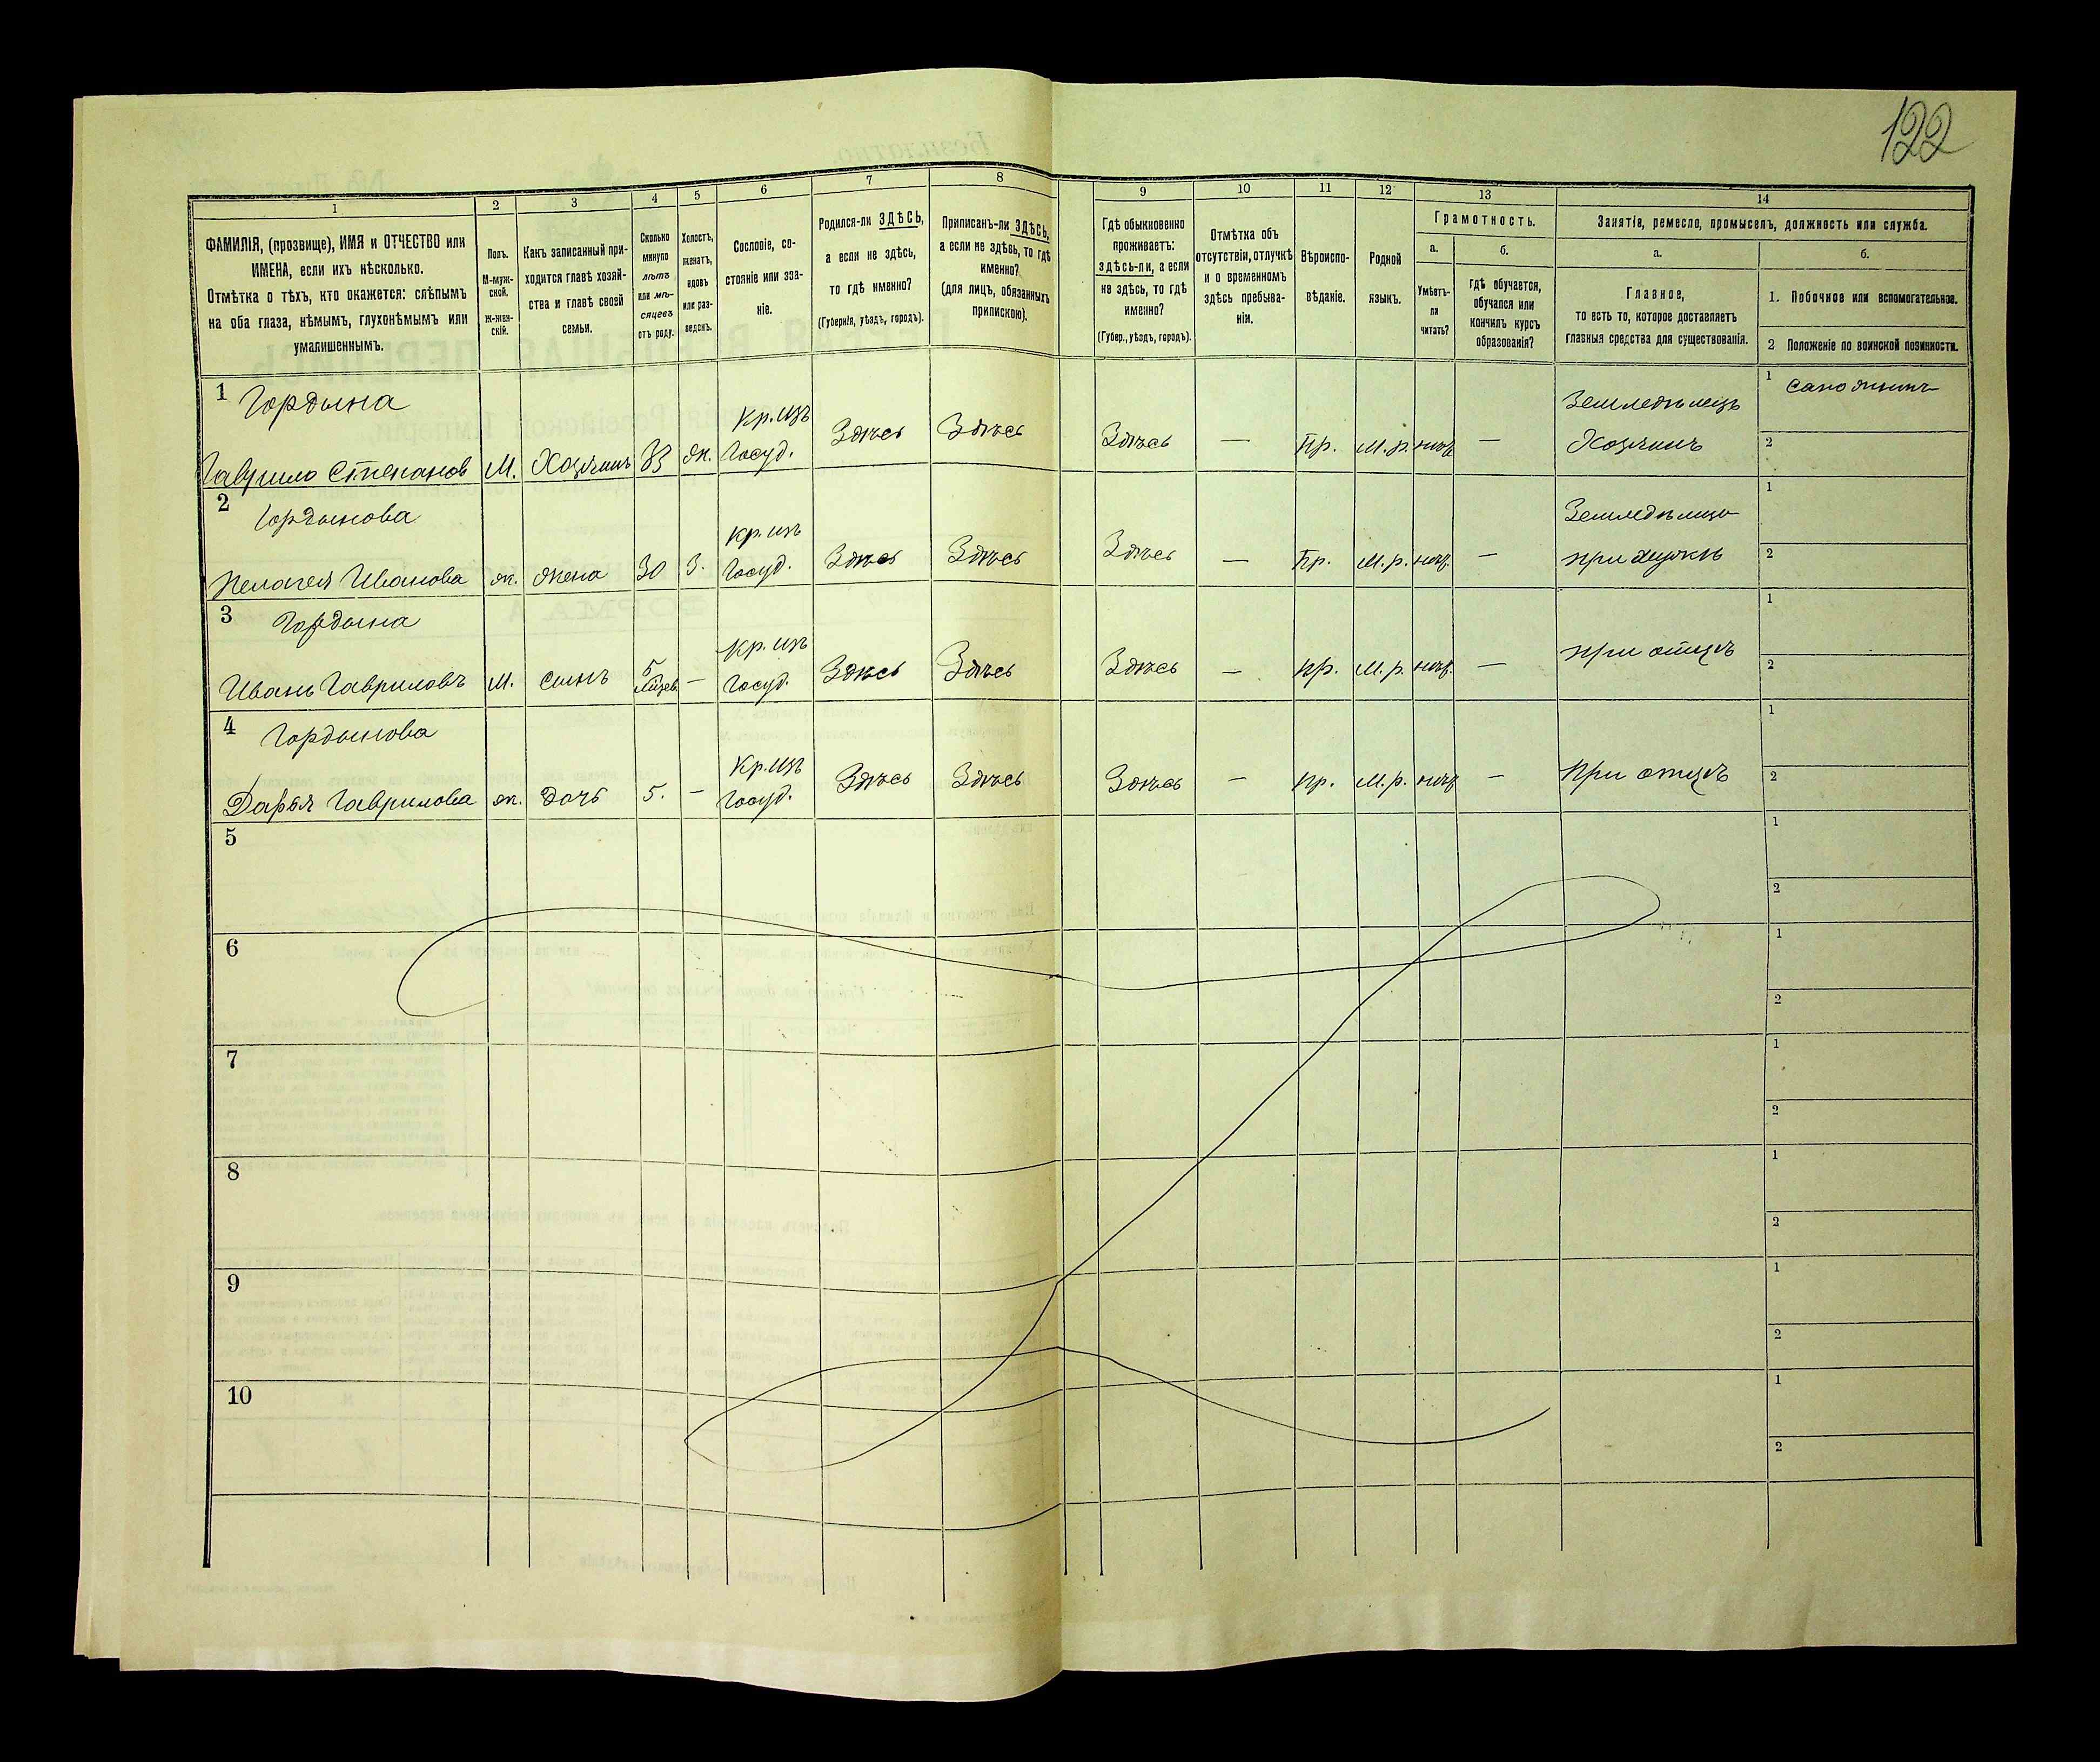 122
1 2 3 4 5 6 7 8 9 10 11 12 13 14
ФАМИЛІЯ, (прозвище), ИМЯ и ОТЧЕСТВО или ИМЕНА, если ихъ нѣсколько.
Отмѣтка о тѣхъ, кто окажется: слѣпымъ на оба глаза, нѣмымъ, глухонѣмымъ или умалишеннымъ.
Полъ.
М-мужской.
Ж-женскій.
Какъ записанный приходится главѣ хозяйства и главѣ своей семьи.
Сколько минуло лѣтъ или мѣсяцевъ отъ роду.
Холостъ, женатъ, вдовъ или разведенъ.
Сословіе, состояніе или званіе.
Родился-ли ЗДѢСЬ, а если не здѣсь, то гдѣ именно?
(Губернія, уѣздъ, городъ).
Приписанъ-ли ЗДѢСЬ, а если не здѣсь, то гдѣ именно?
(для лицъ, обязанныхъ припискою).
Гдѣ обыкновенно проживаетъ: здѣсь-ли, а если не здѣсь, то гдѣ именно?
(Губер., уѣздъ, городъ).
Отмѣтка объ отсутствіи, отлучкѣ и о временномъ здѣсь пребываніи.
Вѣроисповѣданіе.
Родной языкъ.
Грамотность.
а.
Умѣетъ-ли читать?
б.
гдѣ обучается, обучался или кончилъ курсъ образованія?
Занятія, ремесло, промыселъ, должность или служба.
а.
Главное,
то есть то, которое доставляетъ главныя средства для существованія.
б.
1. Побочное или вспомогательное.
2 Положеніе по воинской повинности.
1 Гордына
Гаврило Степановъ М. Хозяинъ 33 ж. Кр. изъ Госуд. Здѣсь Здѣсь Здѣсь — Пр. М.р. нѣтъ — Земледѣлецъ Хозяинъ
1 сапожникъ
2
2 Гордынова
Пелагея Иванова ж. жена 30 З. Кр. изъ Госуд. Здѣсь Здѣсь Здѣсь — Пр. М.р. нѣтъ — при мужѣ
1
2
3 Гордына
Иванъ Гавриловъ М. сынъ 5 — Кр. изъ Госуд. Здѣсь Здѣсь Здѣсь — пр. М.р. нѣтъ — при отцѣ
1
2
4 Гордынова
Дарья Гаврилова ж. дочь 5. — Кр. изъ Госуд. Здѣсь Здѣсь Здѣсь — пр. М.р. нѣтъ — При отцѣ
1
2
5
1
2
6
1
2
7
1
2
8
1
2
9
1
2
10
1
2